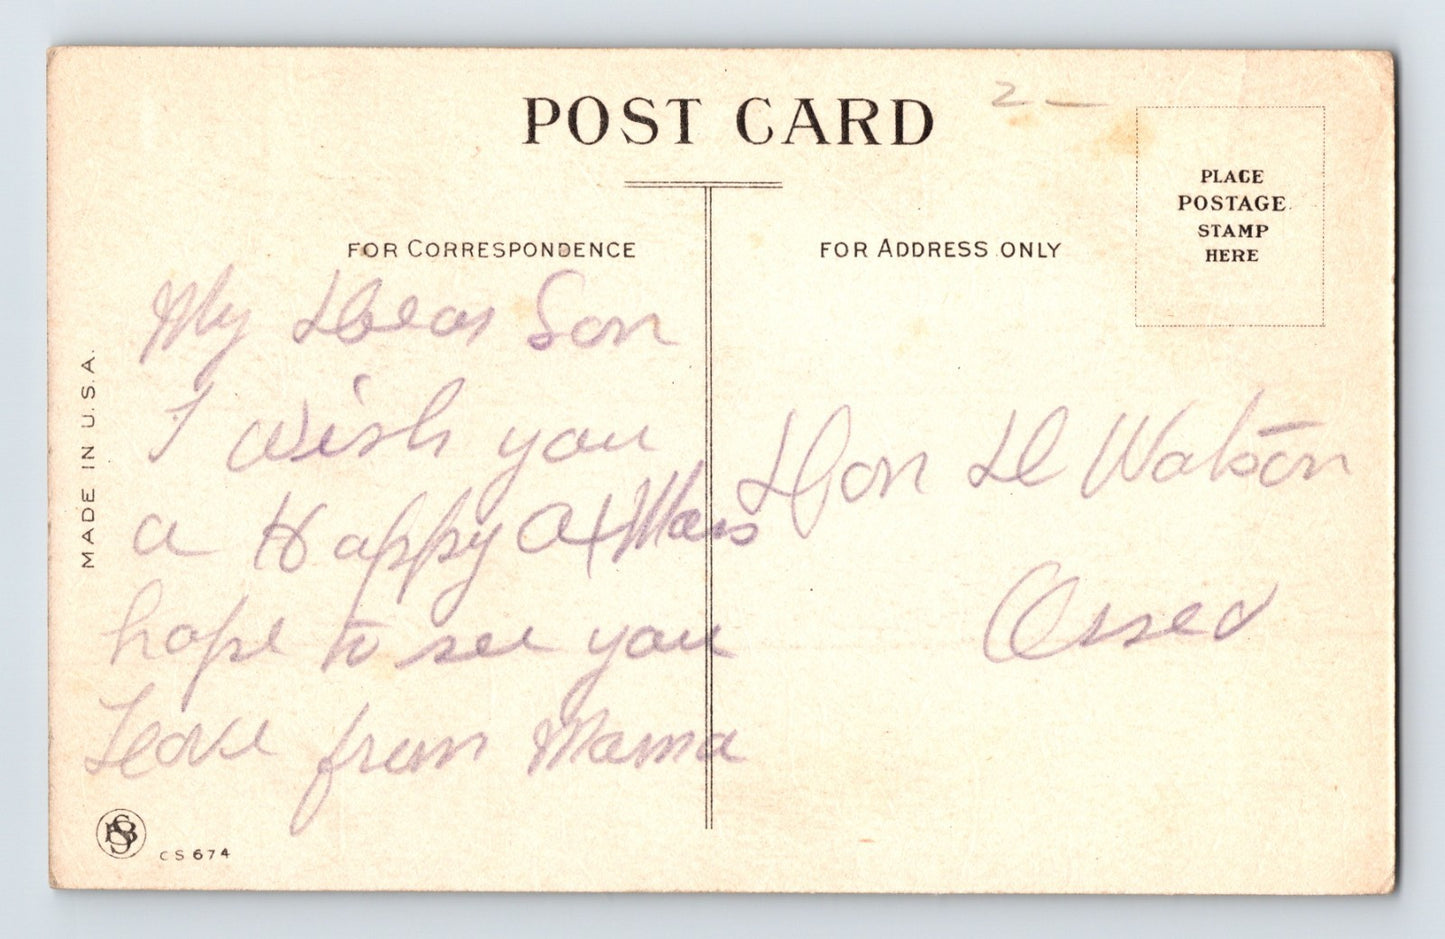 POST CARD
2 —
PLACE
POSTAGE
STAMP
HERE
FOR CORRESPONDENCE
FOR ADDRESS ONLY
MADE IN U.S.A.
My Dear Son
I wish you
a Happy
hope to see you
Love from Mama
Don D Watson
CS 674